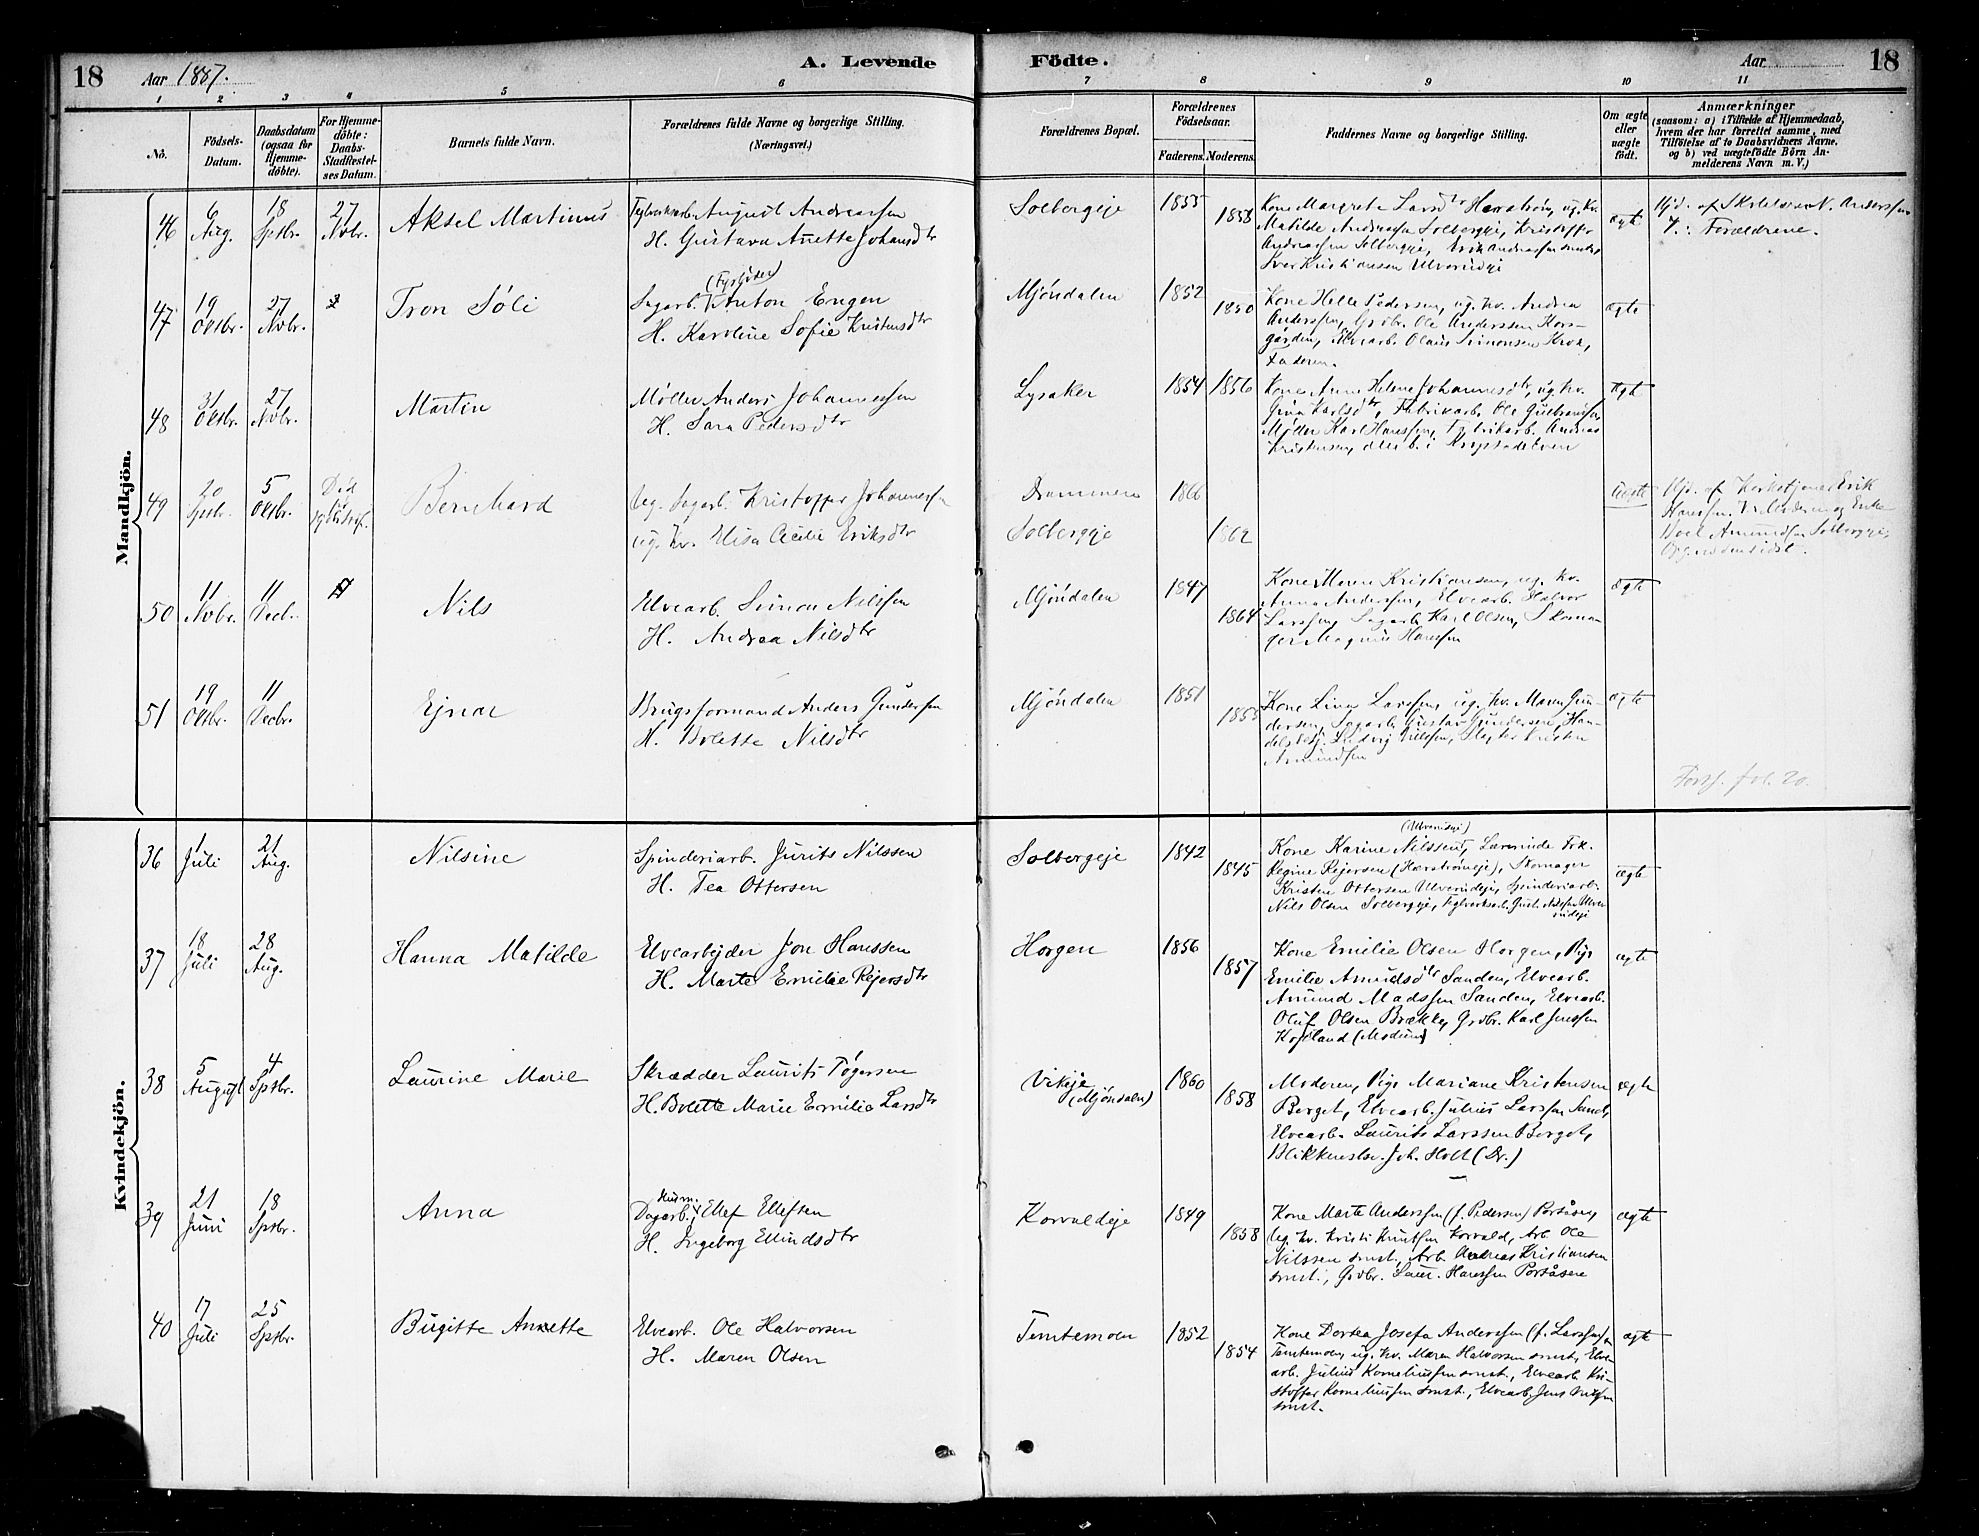 18 Aar 1887. A. Levende Födte. Aar 18
1 2 3 4 5 6 7 8 9 10 11
No.
Födsels-
Datum.
Daabsdatum
(ogsaa for
Hjemme-
döbte).
For Hjemme-
döbte:
Daabs-
Stadfæstel-
ses Datum.
Barnets fulde Navn.
Forældrenes fulde Navne og borgerlige Stilling.
(Næringsvei.)
Forældrenes Bopæl.
Forældrenes
Födselsaar.
Faderens. Moderens.
Faddernes Navne og borgerlige Stilling.
Om ægte
eller
uægte
födt.
Anmærkninger
(saasom: a) i Tilfælde af Hjemmedaab,
hvem der har forrettet samme, med
Tilföielse af to Daabsvidners Navne,
og b) ved uægtefödte Börn An-
melderens Navn m. V.)
Mandkjön.
46
6
Aug.
18
Sptbr.
27
Nvbr.
Aksel Martinus
Teglverksarb. August Andreassen
H. Gustava Anette Johansdtr
Solbergeje
1855
1858
Kone Margrete Larsdtr Hærström, ug. kv.
Matilde Andreassen Solbergeje, Kristoffer
Andreassen Solbergeje,
Iver Kristiansen Ulverudeje
ægte
Hjd. af N. Anderssen
Forældrene.
47
19
Oktbr.
27
Nvbr.
Tron Söli
(Fyrböder)
Sagarb. Anton Engen
H. Karoline Sofie Kristensdtr
Mjöndalen
1852
1850
Kone Helle Pedersen, ug. kv. Andrea
Anderssen, Grdbr. Ole Anderssen Kors-
gården, Elvearb. Olaus Simonsen Krok,
Faderen.
ægte
48
31
Oktbr.
27
Nvbr.
Martin
Möller Anders Johannessen
H. Sara Pedersdtr
Lysaker
1854
1856
Kone Anne Helene Johannesdtr, ug. kv.
Karlsdtr, Fabrikarb. Ole Gulbransen,
Möller Karl Hanssen, Fabrikarb. Andreas
Kristensen, alle b. i
ægte
49
20
Sptbr.
5
Oktbr.
Död
Bernhard
Ug. Sagarb. Kristoffer Johannessen
ug. kv. Elisa Cecilie Eriksdtr
Drammen
Solbergeje
1866
1862
uægte
Hjd. af Kirketjener Erik
Hanssen.
Amundsen Solbergeje,
50
11
Nvbr.
11
Decb.
Nils
Elvearb. Simon Nilssen
H. Andrea Nilsdtr
Mjöndalen
1847
1864
Kone Maren Kristiansen, ug. kv.
Anna Anderssen, Elvearb. Halvor
Larssen, Sagarb. Karl Olsen, Skoma-
ger Magnus Hanssen
ægte
51
19
Oktbr.
11
Decbr.
Ejnar
Brugsformand Anders Gundersen
H. Bolette Nilsdtr
Mjöndalen
1851
1855
Kone Lina Larssen, ug. kv. Maren Gun-
dersen, Sagarb. Gustav Gundersen, Han-
delsbetj. Ludvig Nilssen,
Amundsen
ægte
Forts. fol. 20.
Kvindekjön.
36
1
Juli
21
Aug.
Nilsine
Spinderiarb. Jurits Nilssen
H. Tea Ottersen
Solbergeje
1842
1845
(Ulverudeje)
Kone Karine Nilssen, Lærerinde Frk.
Regine Rejersen (Hærströmeje), Skomager
Kristen Ottersen Ulverudeje, Spinderiarb.
Nils Olsen Solbergeje, Teglverksarb. Gust. Ulve-
rudeje
ægte
37
18
Juli
28
Aug.
Hanna Matilde
Elvearbejder Jon Hanssen
H. Marte Emilie Rejersdtr
Horgen
1856
1857
Kone Emilie Olsen Horgen, Pige
Emilie Amundsdtr Sanden, Elvearb.
Amund Madssen Sanden, Elvearb.
Oluf Olsen Brække, Grdbr. Karl Jenssen
(Modum)
ægte
38
5
August
4
Sptbr.
Laurine Marie
Skrædder Laurits Tögersen
H. Bolette Marie Emilie Larsdtr
Vikeje
(Mjöndalen)
1860
1858
Moderen, Pige Mariane Kristensen
Berget, Elvearb. Julius Larssen Sand,
Elvearb. Laurits Larssen Berget,
Blikkensl. Joh. Holt (Dr.)
ægte
39
21
Juni
18
Sptbr.
Anna
Husm.
Dagarb. Ellef Ellefsen
H. Ingeborg Ellindsdtr
Korvaldeje
1849
1858
Kone Marte Anderssen (f. Pedersen) Portåsen,
Ug. kv. Kristi Knutsen Korvald, Arb. Ole
Nilssen smst., Arb. Andreas Kristiansen
smst., Grdbr. Laur. Hanssen Portåsen
ægte
40
17
Juli
25
Sptbr.
Birgitte Annette
Elvearb. Ole Halvorsen
H. Maren Olsen
Temtemoen
1852
1854
Kone Dortea Josefa Anderssen (f. Larssen)
Temtemoen, ug. kv. Maren Halvorsen smst., Elve-
arb. Julius Korneliussen smst., Elvearb. Kri-
stoffer Korneliussen smst., Elvearb. Jens
smst.
ægte